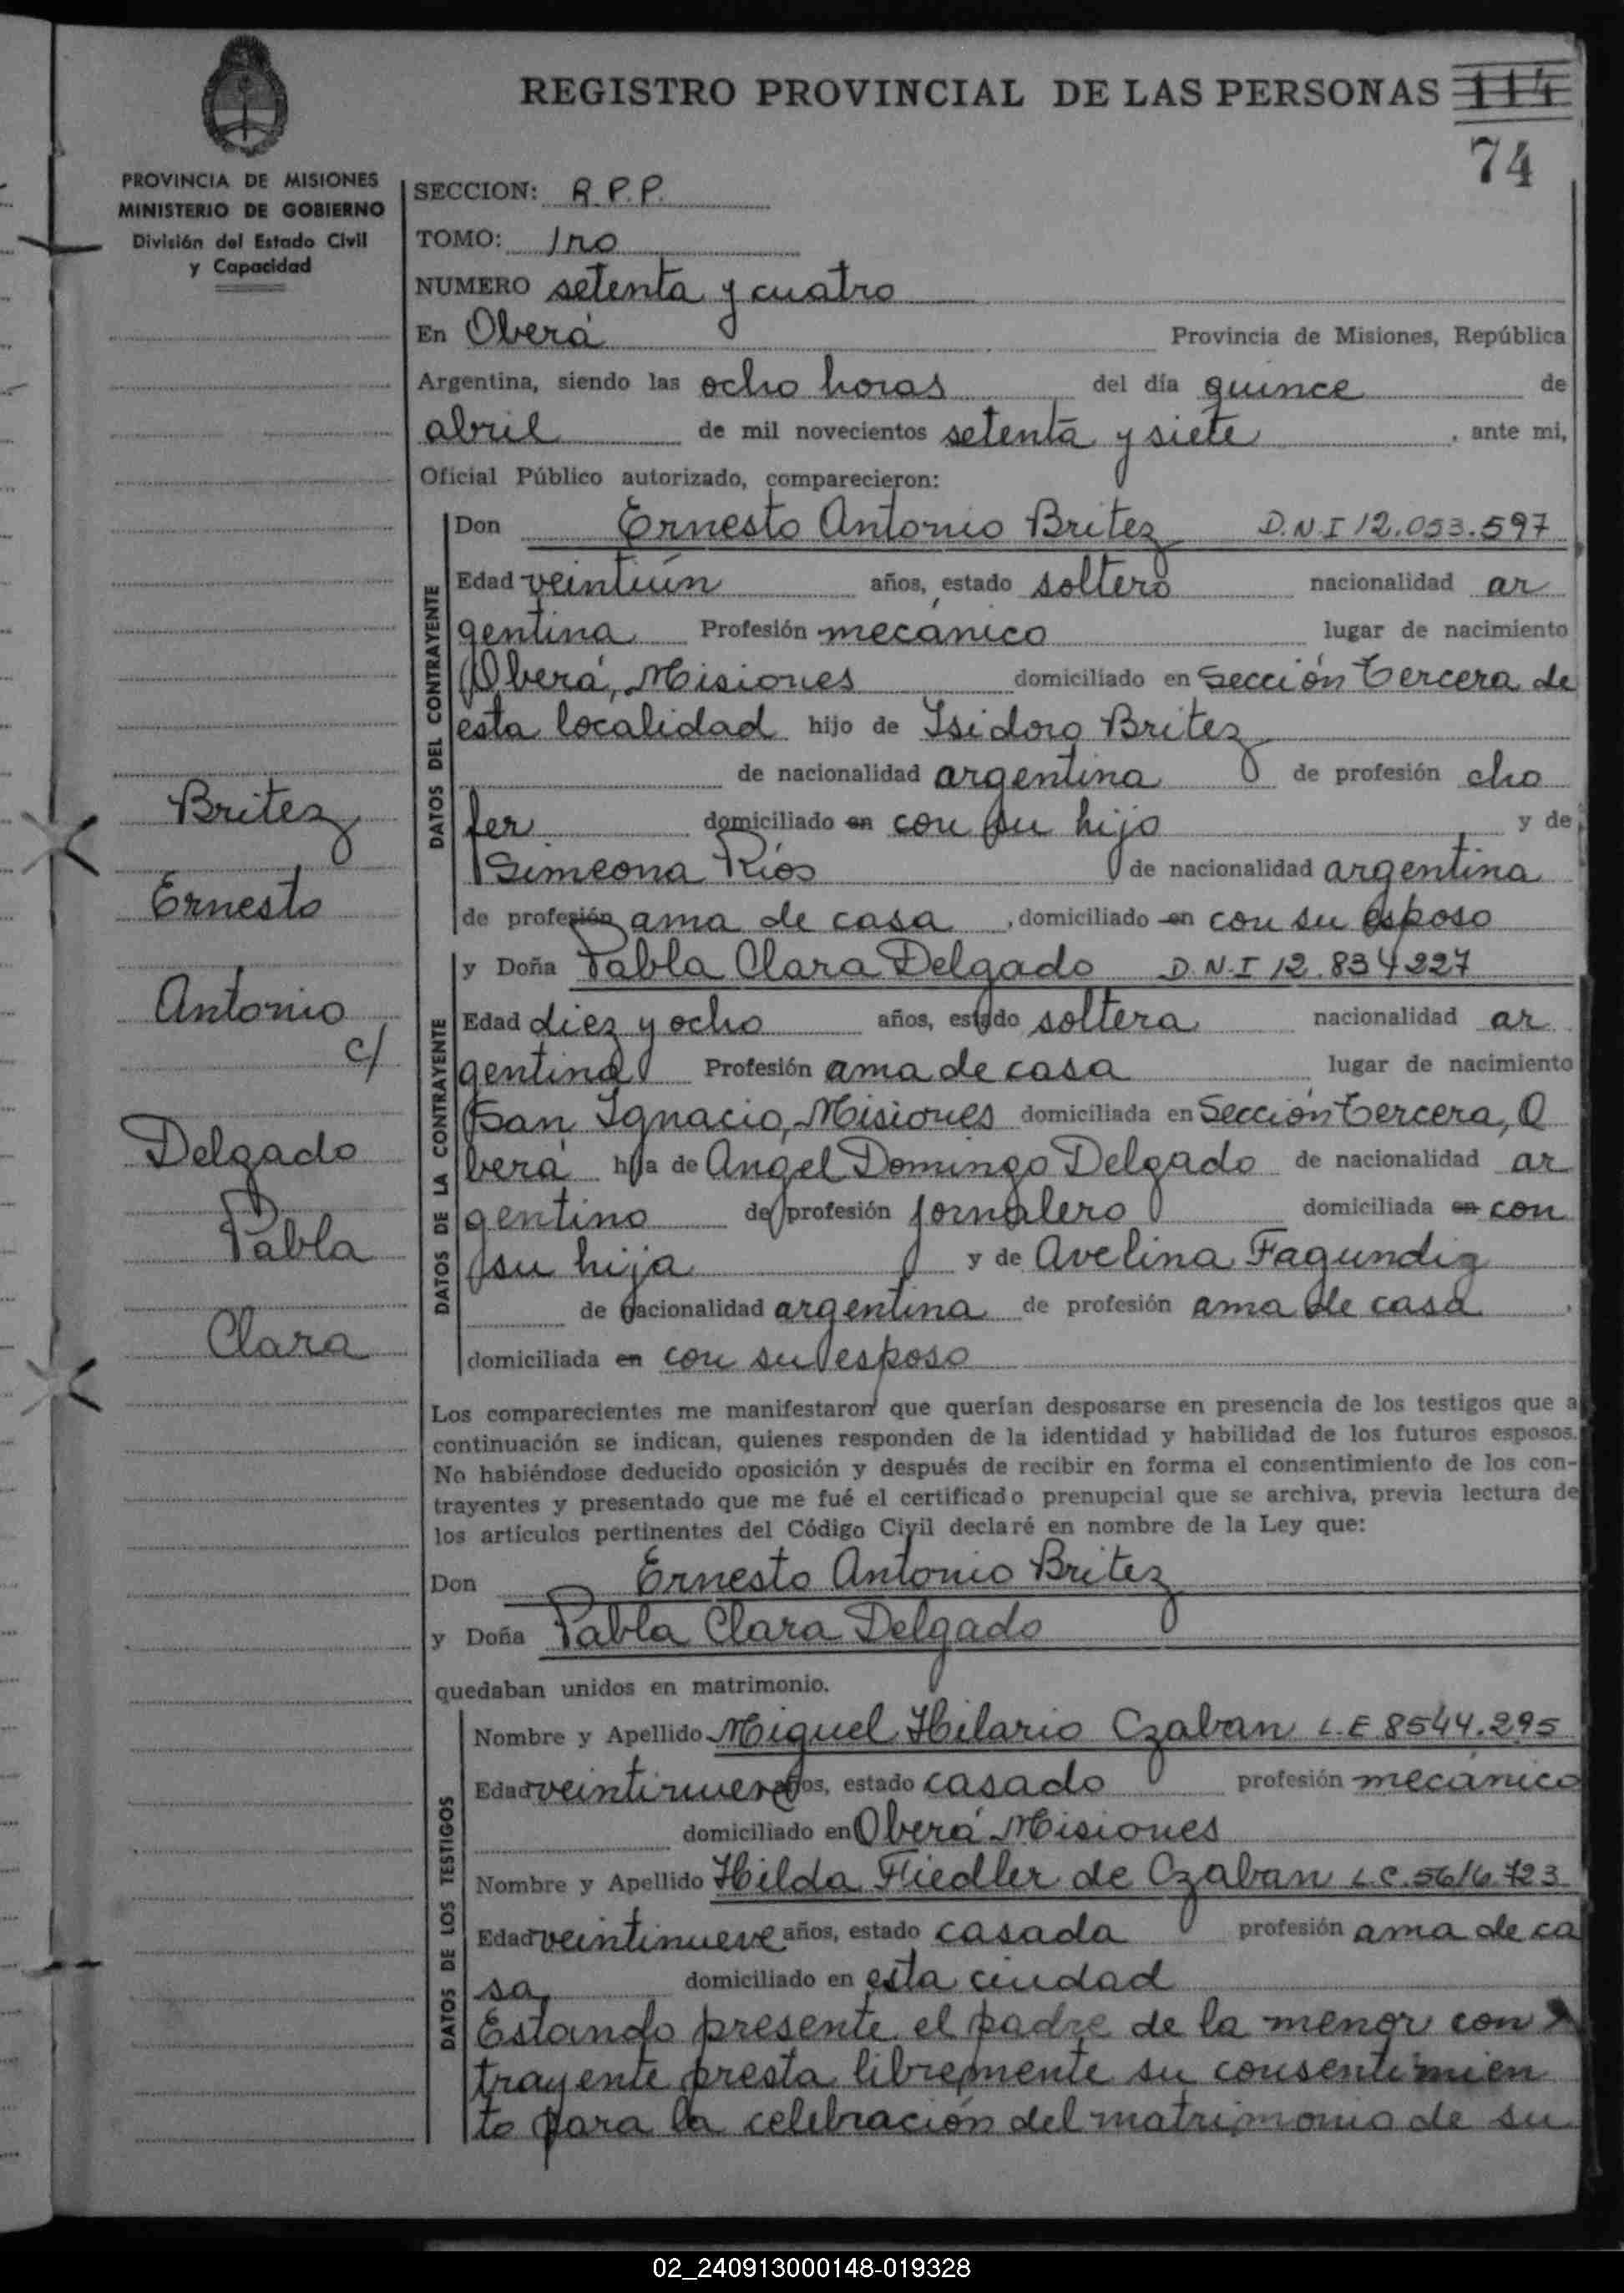 REGISTRO PROVINCIAL DE LAS PERSONAS 114
74
PROVINCIA DE MISIONES
MINISTERIO DE GOBIERNO
División del Estado Civil
y Capacidad
SECCION: R.P.P.
TOMO: 1ro
NUMERO setenta y cuatro
En Oberá Provincia de Misiones, República
Argentina, siendo las ocho horas del día quince de
abril de mil novecientos setenta y siete, ante mi,
Oficial Público autorizado, comparecieron:
DATOS DEL CONTRAYENTE
Don Ernesto Antonio Britez D.N.I 12.053.597
Edad veintiún años, estado soltero nacionalidad ar
gentina Profesión mecánico lugar de nacimiento
Oberá, Misiones domiciliado en Sección Tercera de
esta localidad hijo de Isidoro Britez
de nacionalidad argentina de profesión cho
fer domiciliado en con su hijo y de
Simeona Ríos de nacionalidad argentina
de profesión ama de casa, domiciliado en con su esposo
Britez
Ernesto
Antonio
c/
Delgado
Pabla
Clara
DATOS DE LA CONTRAYENTE
y Doña Pabla Clara Delgado D.N.I 12.834227
Edad diez y ocho años, estado soltera nacionalidad ar
gentina Profesión ama de casa lugar de nacimiento
San Ignacio, Misiones domiciliada en Sección Tercera, O
berá hija de Angel Domingo Delgado de nacionalidad ar
gentino de profesión jornalero domiciliada en con
su hija y de Avelina Fagundiz
de nacionalidad argentina de profesión ama de casa
domiciliada en con su esposo
Los comparecientes me manifestaron que querían desposarse en presencia de los testigos que a
continuación se indican, quienes responden de la identidad y habilidad de los futuros esposos.
No habiéndose deducido oposición y después de recibir en forma el consentimiento de los con-
trayentes y presentado que me fué el certificado prenupcial que se archiva, previa lectura de
los artículos pertinentes del Código Civil declaré en nombre de la Ley que:
Don Ernesto Antonio Britez
y Doña Pabla Clara Delgado
quedaban unidos en matrimonio.
DATOS DE LOS TESTIGOS
Nombre y Apellido Miguel Hilario Czaban L.E 8544.295
Edad veintinueve años, estado casado profesión mecánico
domiciliado en Oberá Misiones
Nombre y Apellido Hilda Fiedller de Czaban L.C. 5616.723
Edad veintinueve años, estado casada profesión ama de ca
sa, domiciliado en esta ciudad
Estando presente el padre de la menor con
trayente presta libremente su consentimien
to para la celebración del matrimonio de su
02_240913000148-019328